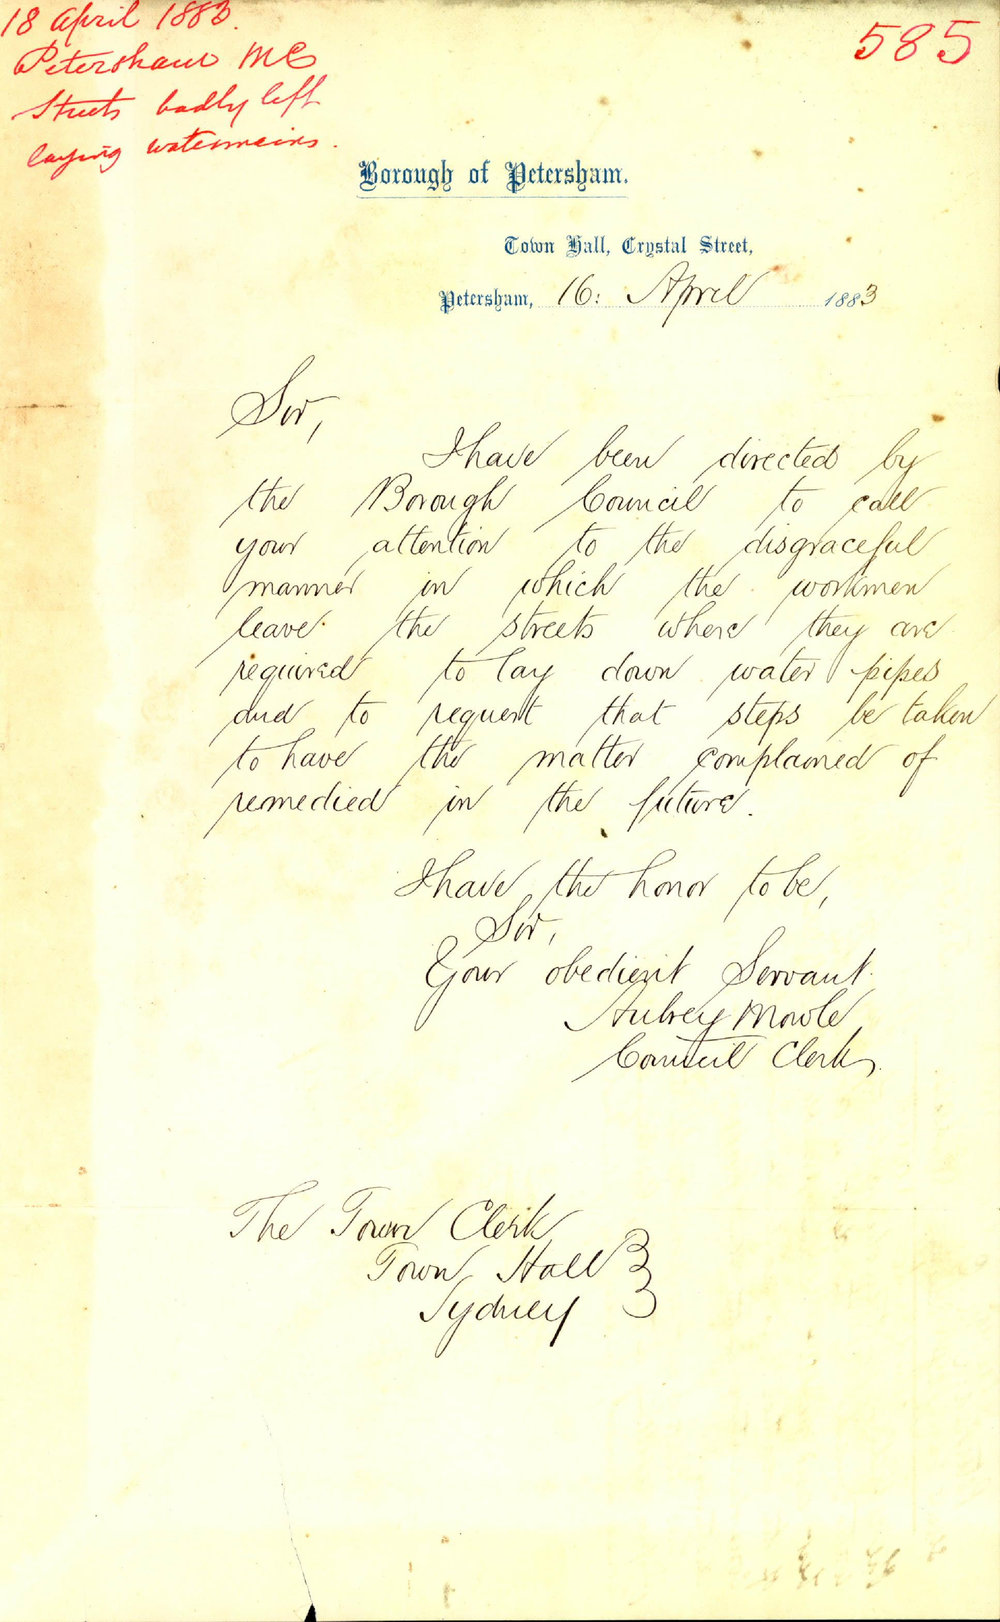 18 April 1883.
Petersham MC
Streets badly left
laying watermains.
585
Borough of Petersham.
Town Hall, Crystal Street,
Petersham, 16: April 1883
Sir,
I have been directed by
the Borough Council to call
your attention to the disgraceful
manner in which the workmen
leave the streets where they are
required to lay down water pipes
and to request that steps be taken
to have the matter complained of
remedied in the future.
I have the honor to be,
Sir,
Your obedient Servant.
Aubrey Mowle
Council Clerk,
The Town Clerk
Town Hall
Sydney